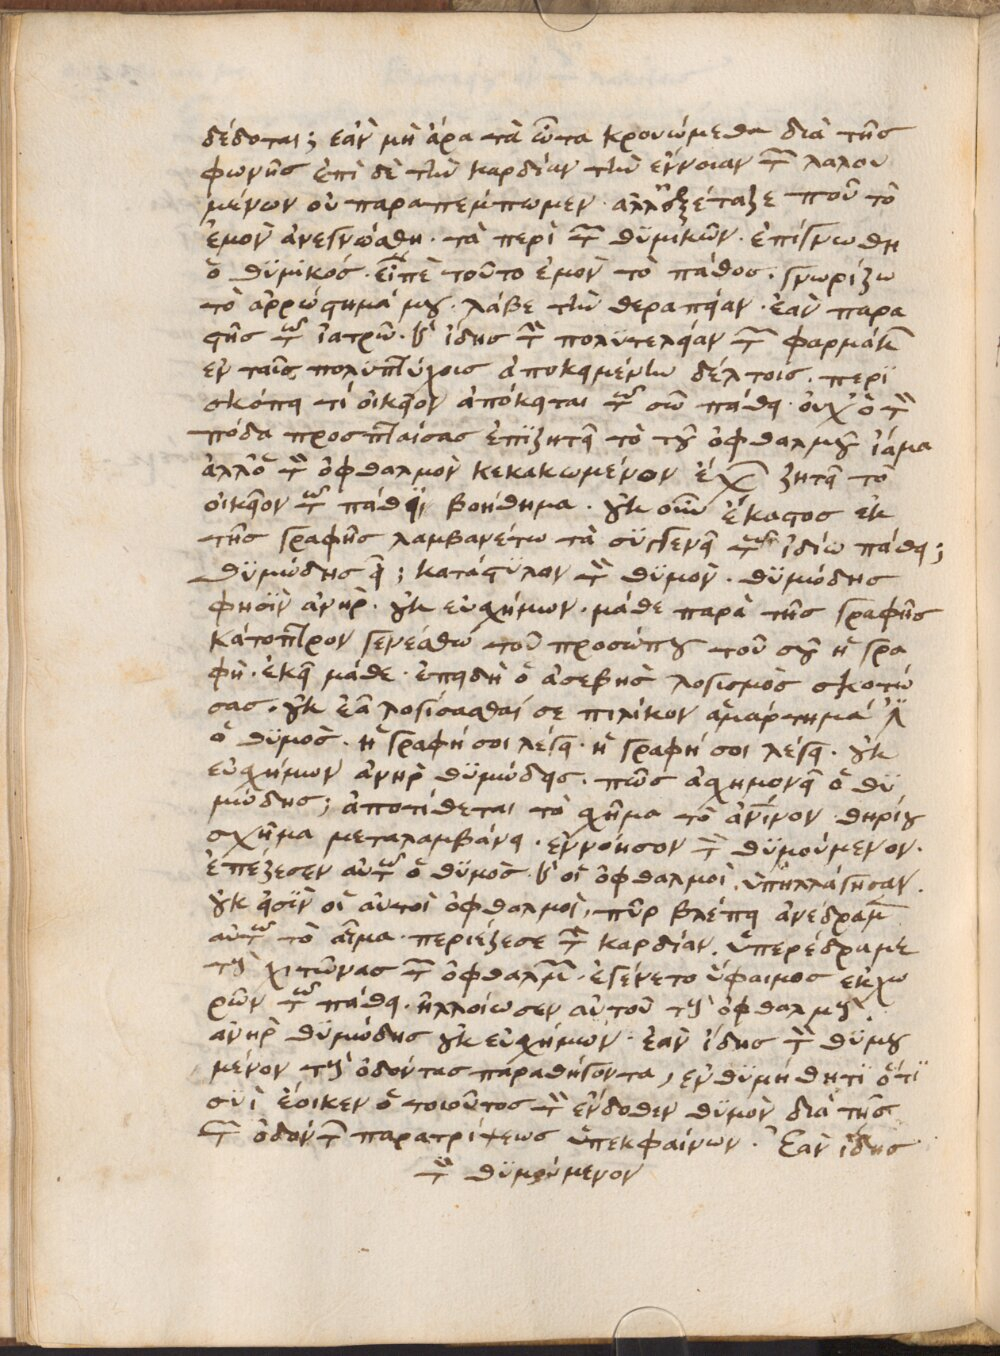 δέδοται; ἐὰν μὴ ἄρα τὰ ὦτα κρουώμεθα διὰ τῆς
φωνῆς ἐπὶ δὲ τὴν καρδίαν τὴν ἔννοιαν τῶν λαλου
μένων οὐ παραπέμπωμεν. ἀλλ' ἐξέταζε ποῦ τὸ
ἐμὸν ἀνεγνώσθη. τὰ περὶ τῶν θυμικῶν. ἐπίγνωθι
ὁ θυμικός. εἰπὲ τοῦτο ἐμὸν τὸ πάθος. γνωρίζω
τὸ ἀρρώστημά μου. λάβε τὴν θεραπείαν. ἐὰν παρα
στῇς τῷ ἰατρῷ. καὶ ἴδῃς τὴν πολυτέλειαν τῶν φαρμάκων
ἐν ταῖς πολυπτύχοις ἀποκειμένην δέλτοις. περι
σκόπει τί οἰκεῖον ἀπόκειται τῷ σῷ πάθει. οὐχ ὁ τὸν
πόδα προσπταίσας ἐπιζητεῖ τὸ τοῦ ὀφθαλμοῦ ἴαμα
ἀλλ' ὁ τὸν ὀφθαλμὸν κεκακωμένον ἔχων ζητεῖ τὸ
οἰκεῖον τῷ πάθει βοήθημα. οὐκοῦν ἕκαστος ἐκ
τῆς γραφῆς λαμβανέτω τὰ συγγενῆ τῷ ἰδίῳ πάθει;
θυμώδης εἶ; κατάστειλον τὸν θυμόν. θυμώδης
φησὶν ἀνήρ. οὐκ εὐσχήμων. μάθε παρὰ τῆς γραφῆς
κάτοπτρον γενέσθω τοῦ προσώπου τοῦ σοῦ ἡ γρα
φή. ἐκεῖ μάθε. ἐπειδὴ ὁ ἀσεβὴς λογισμὸς σκοτώ
σας. οὐκ ἐᾷ λογίσασθαί σε πιλίκον ἁμάρτημά ἐστιν
ὁ θυμός. ἡ γραφή σοι λέγει. ἡ γραφή σοι λέγει. οὐκ
εὐσχήμων ἀνὴρ θυμώδης. πῶς ἀσχημονεῖ ὁ θυ
μώδης; ἀποτίθεται τὸ σχῆμα τὸ ἀνθρώπινον θηρίου
σχῆμα μεταλαμβάνει. ἐννόησον τὸν θυμούμενον.
ἐπέζεσεν αὐτῷ ὁ θυμός. καὶ οἱ ὀφθαλμοὶ ὑπηλλάγησαν.
οὐκ εἰσὶν οἱ αὐτοὶ ὀφθαλμοί, πῦρ βλέπει ἀνέδραμεν
αὐτῷ τὸ αἷμα. περιέζεσε τὴν καρδίαν. ὑπερέδραμε
τοὺς χιτῶνας τῶν ὀφθαλμῶν. ἐγένετο ὕφαιμος ἐκχω
ρῶν τῷ πάθει. ἠλλοίωσεν αὐτοῦ τοὺς ὀφθαλμούς.
ἀνὴρ θυμώδης οὐκ εὐσχήμων. ἐὰν ἴδῃς τὸν θυμού
μενον τοὺς ὀδόντας παραθήγοντα, ἐνθυμήθητι ὅτι
συὶ ἔοικεν ὁ τοιοῦτος τὸν ἔνδοθεν θυμὸν διὰ τῆς
τῶν ὀδόντων παρατρίψεως ὑπεκφαίνων. Ἐὰν ἴδῃς
τὸν θυμούμενον